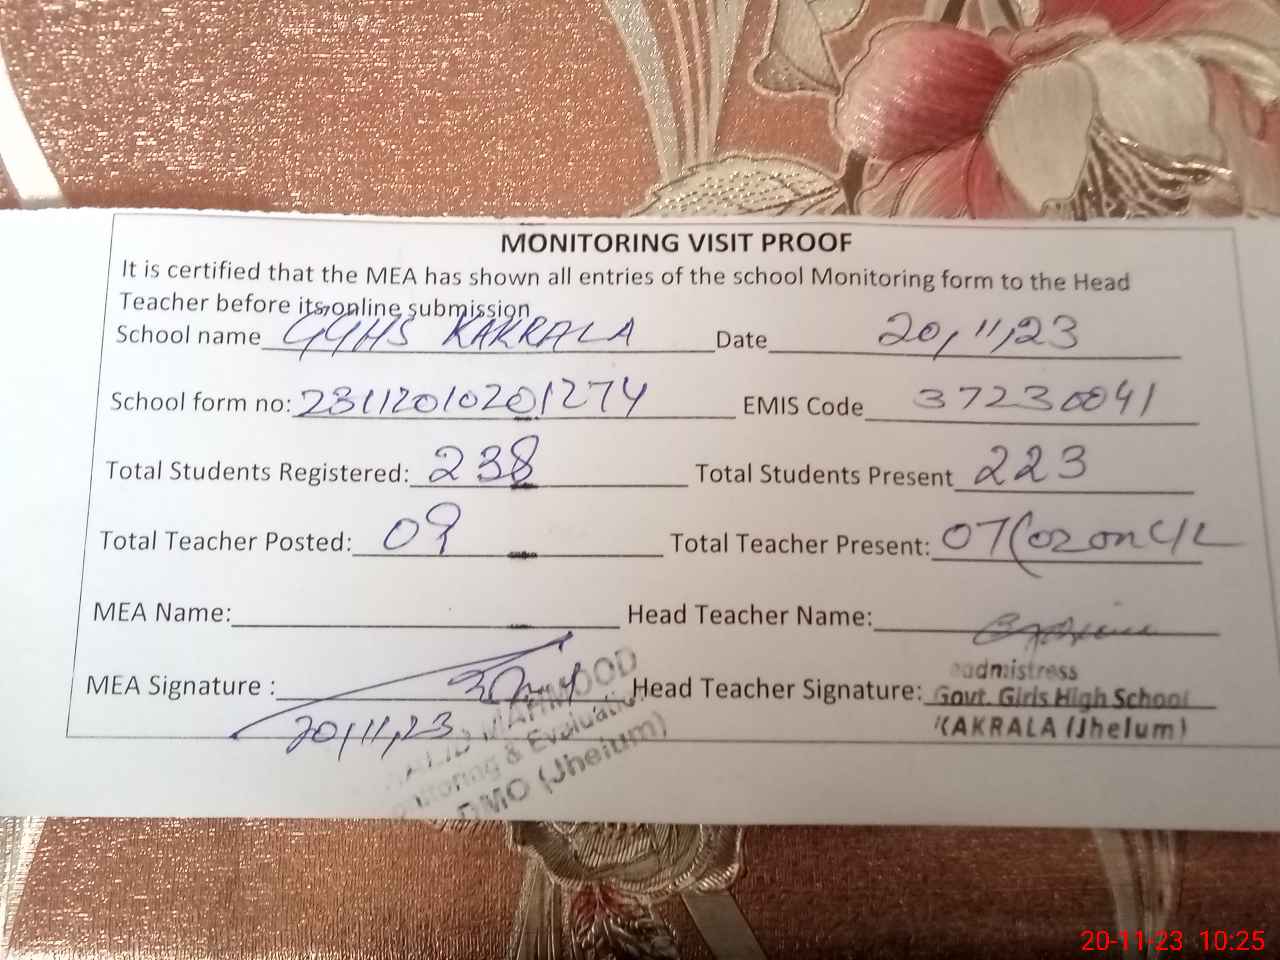 MONITORING VISIT PROOF
It is certified that the MEA has shown all entries of the school Monitoring form to the Head
Teacher before its online submission
School name GGHS KAKRALA Date 20/11/23
School form no: 23112010201274 EMIS Code 37230041
Total Students Registered: 238 Total Students Present 223
Total Teacher Posted: 09 Total Teacher Present: 07(02 on C/L
MEA Name: Head Teacher Name:
MEA Signature : Head Teacher Signature:
20/11/23
MAHMOOD
& Evaluation
DMO (Jhelum)
eadmistress
Govt. Girls High School
KAKRALA (Jhelum)
20-11-23 10:25